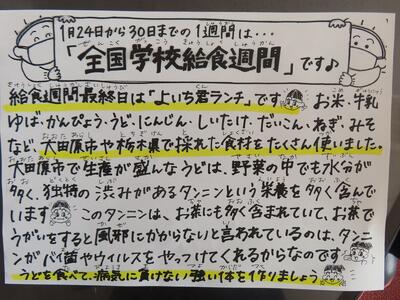 1月24日から30日までの1週間は・・・
「全国学校給食週間」です♪
給食週間最終日は「よいち君ランチ」です お米・牛乳
ゆば・かんぴょう・うど・にんじん・しいたけ・だいこん・ねぎ・みそ
など、大田原市や栃木県で採れた食材をたくさん使いました。
大田原市で生産が盛んなうどは、野菜の中でも水分が
多く、独特の渋みがあるタンニンという栄養を多く含んで
います このタンニンは、お茶にも多く含まれていて、お茶で
うがいをすると風邪にかからないと言われているのは、タンニ
ンがバイ菌やウイルスをやっつけてくれるからなのです
うどを食べて、病気に負けない強い体を作りましょう